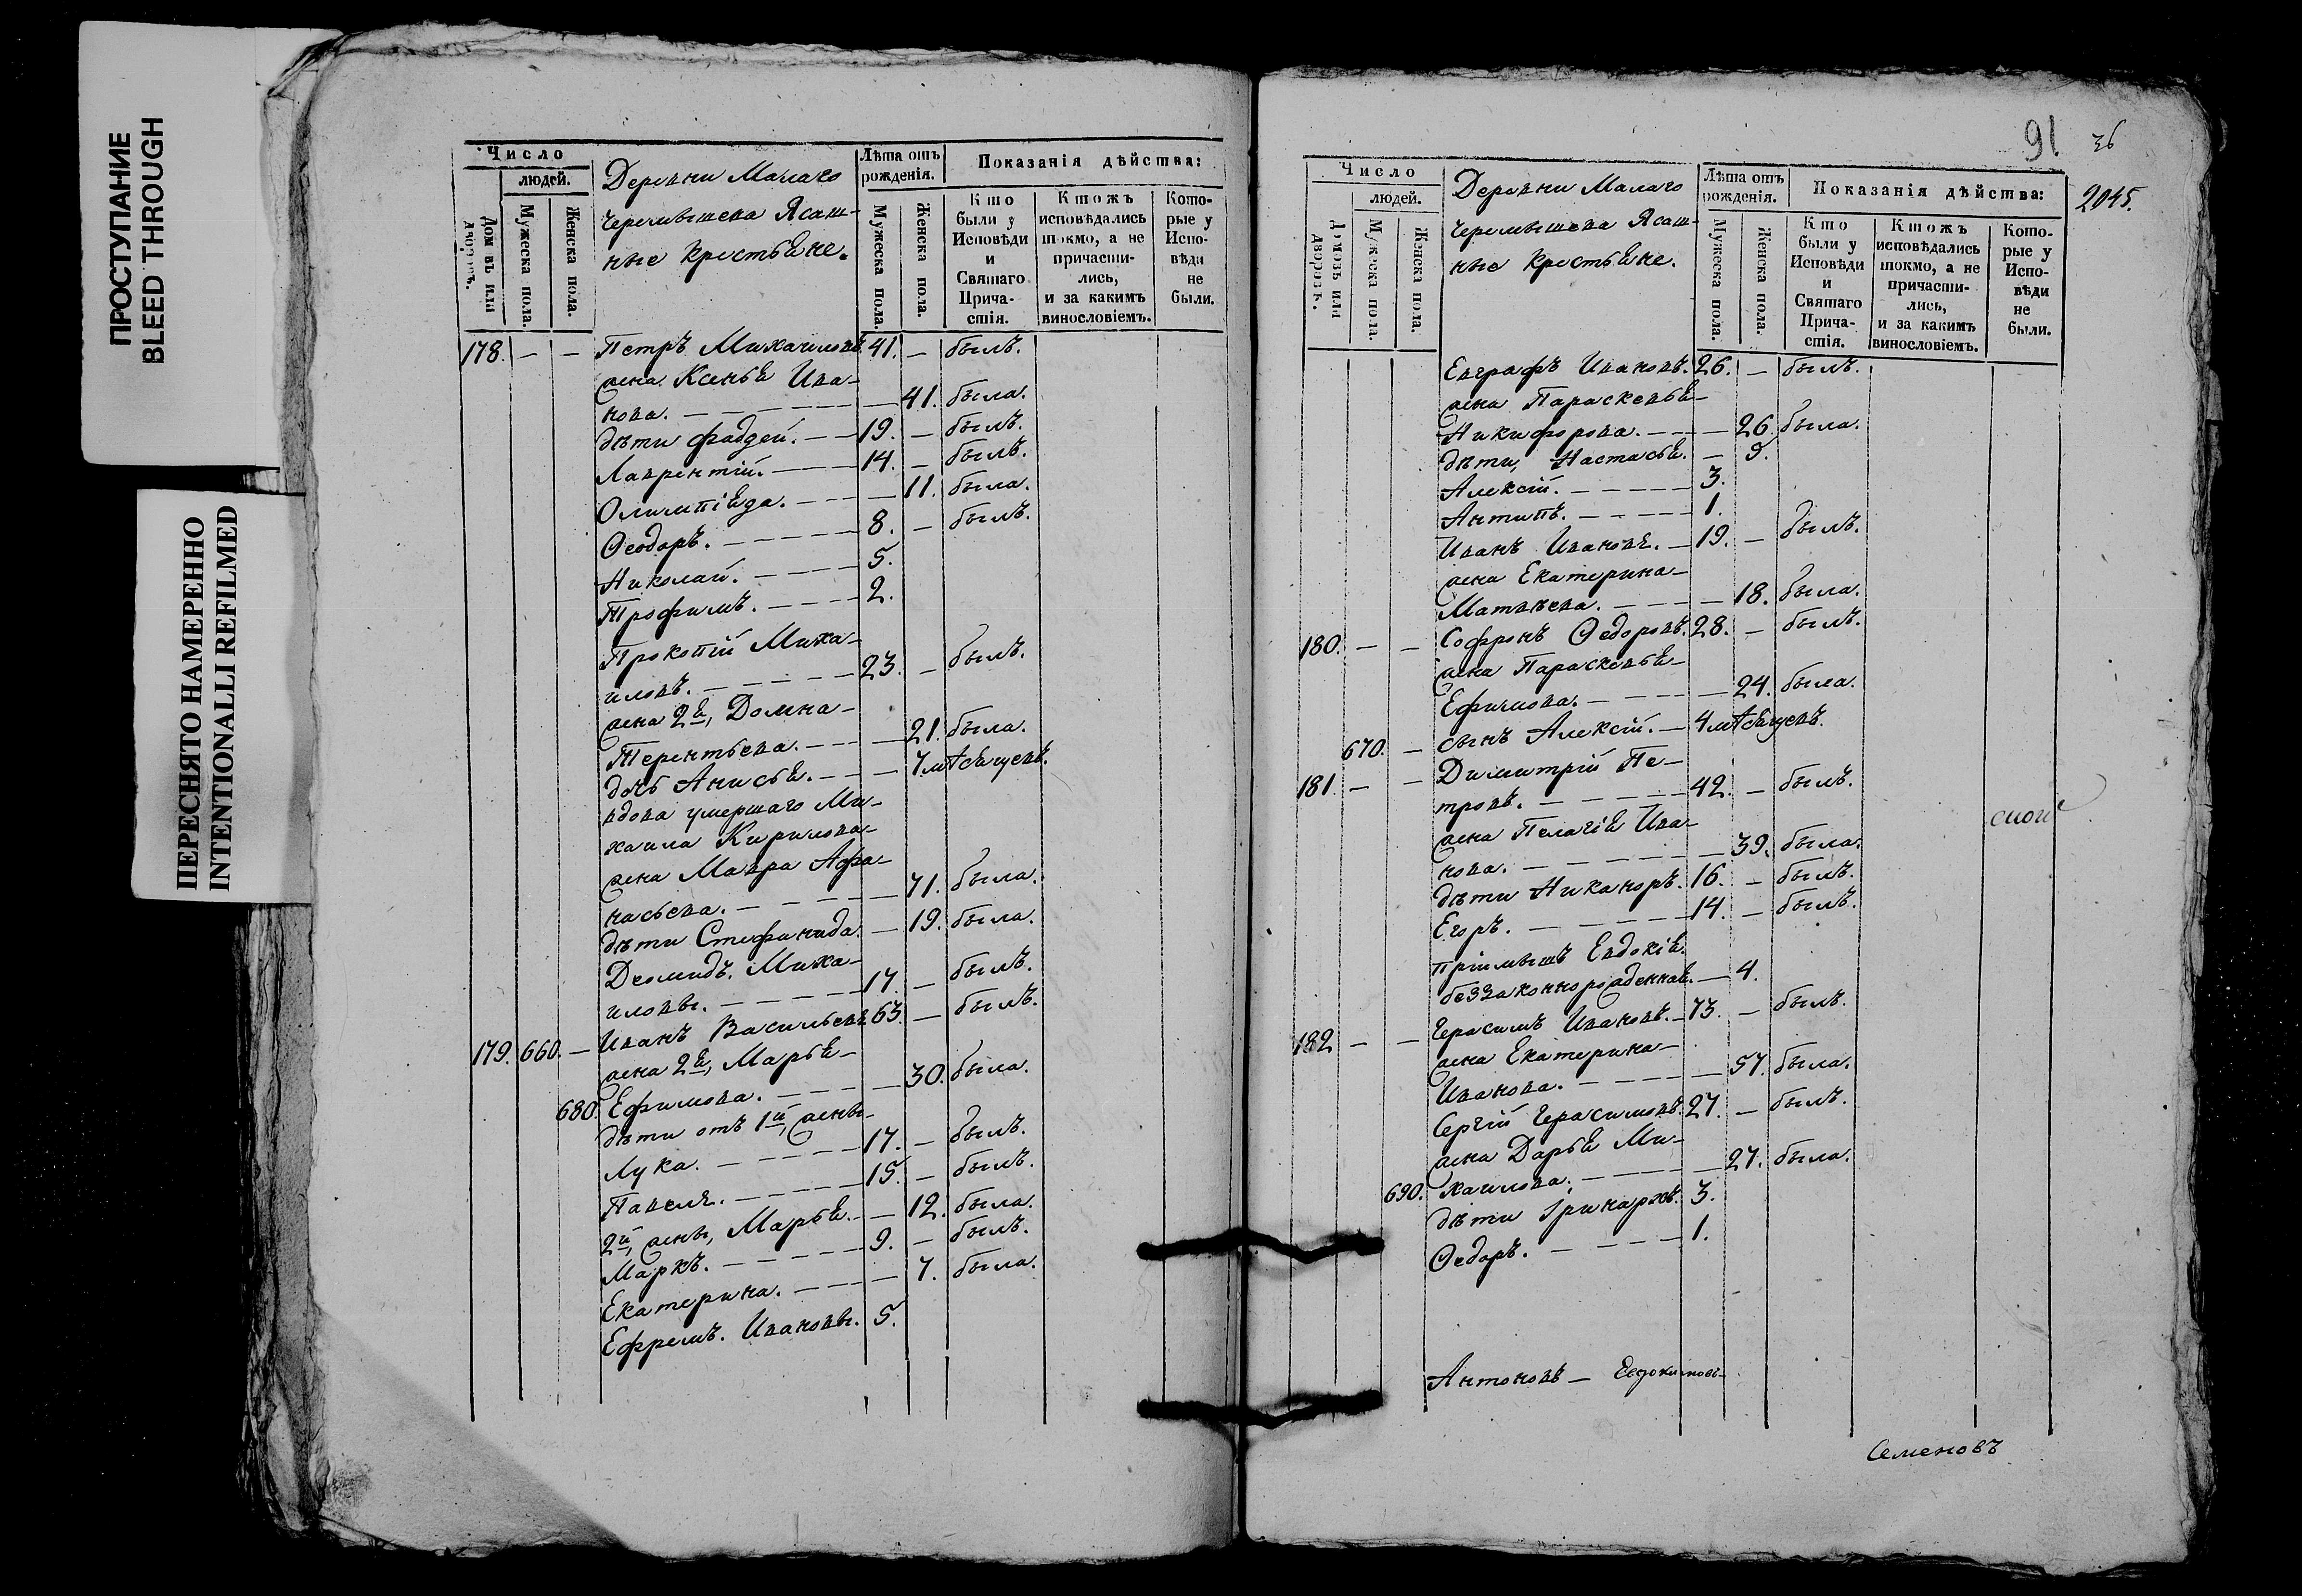 ПРОСТУПАНИЕ
BLEED THROUGH
ПЕРЕСНЯТО НАМЕРЕННО
INTENTIONALLI REFILMED
Число
людей.
Домовъ или дворовъ.
Мужеска пола.
Женска пола.
Деревни Малаго
Черемышева Ясаш-
ные крестьяне.
Лѣта отъ рожденія.
Мужеска пола.
Женска пола.
Показанія дѣйства:
Кто были у Исповѣди и Святаго Прича-стія.
Ктожъ исповѣдались токмо, а не причасти-лись, и за какимъ винословіемъ.
Кото-рые у Испо-вѣди не были.
178. — — Петръ Михаиловъ. 41. — былъ.
жена Ксенья Ива-
нова. — 41. была.
дѣти Фаддей. 19. — былъ.
Лаврентій. 14. — былъ.
Олимпіяда. — 11. была.
Ѳеодоръ. 8. — былъ.
Николай. 5.
Трофимъ. 2.
Прокопій Миха-
иловъ. 23. — былъ.
жена 2я, Домна
Терентьева. — 21. была.
дочь Анисья. — 7.м
вдова умершаго Ми-
хаила Кирилова
жена Мавра Афа-
насьева. — 71. была.
дѣти Стефанида. — 19. была.
Деомидъ. Миха-
иловы. 17. — былъ.
179. 660. — Иванъ Васильевъ 63. — былъ.
жена 2я, Марья
680. Ефимова. — 30. была.
дѣти отъ 1й, жены
Лука. 17. — былъ.
Павелъ. 15. — былъ.
2й, жены, Марья. — 12. была.
Маркъ. 9. — былъ.
Екатерина. — 7. была.
Ефремъ. Ивановы. 5.
91.
36
2045.
Число
людей.
Домовъ или дворовъ.
Мужеска пола.
Женска пола.
Деревни Малаго
Черемышева Ясаш-
ные крестьяне.
Лѣта отъ рожденія.
Мужеска пола.
Женска пола.
Показанія дѣйства:
Кто были у Исповѣди и Святаго Прича-стія.
Ктожъ исповѣдались токмо, а не причасти-лись, и за какимъ винословіемъ.
Кото-рые у Испо-вѣди не были.
Евграфъ Ивановъ. 26. — былъ.
жена Параскевья
Никифорова. — 26. была.
дѣти, Настасья. — 9.
Алексій. 3.
Антипъ. 1.
Иванъ Ивановъ. 19. — былъ.
жена Екатерина
Матвѣева. — 18. была.
180. — — Софронъ Ѳедоровъ. 28. — былъ.
жена Параскевья
Ефимова. — 24. была.
670. — сынъ Алексій. 4.м
181. — — Димитрій Пе-
тровъ. 42. — былъ.
жена Пелагія Ива-
нова. — 39. была.
дѣти Никаноръ. 16. — былъ.
Егоръ. 14. — былъ.
пріимышъ Евдокія
беззаконнорожденная. — 4.
182 — — Герасимъ Ивановъ. 73. — былъ.
жена Екатерина
Иванова. — 57. была.
Сергій Герасимовъ. 27. — былъ.
жена Дарья Ми-
690. хаилова. — 27. была.
дѣти Іринархъ. 3.
Ѳедоръ. 1.
Антоновъ — Евдокимовъ
Семеновъ